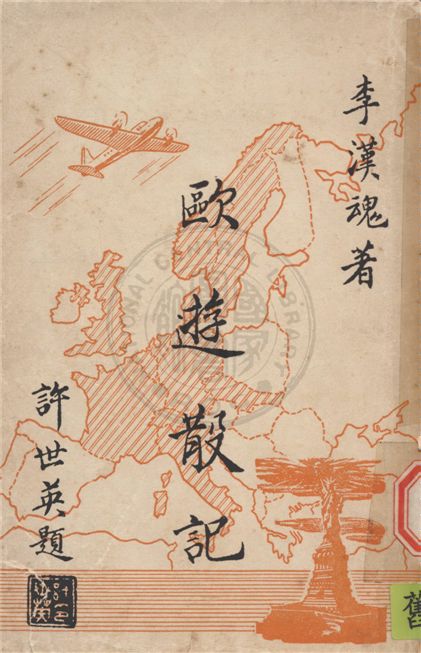 李漢魂著
歐遊散記
許世英題
舊
NATIONAL CENTRAL LIBRARY